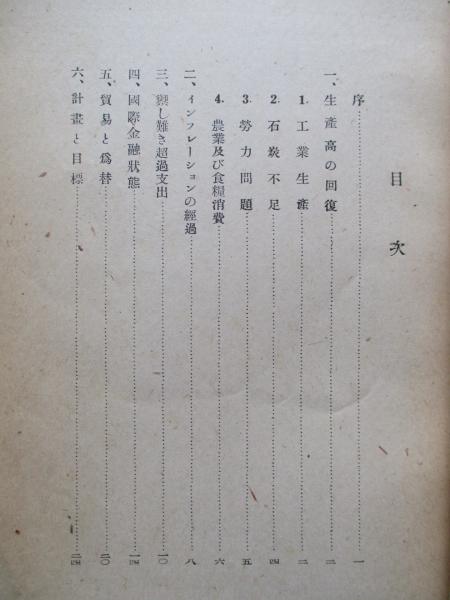 目次
序……一
一、生産高の回復……二
1. 工業生産……二
2. 石炭不足……四
3. 勞力問題……五
4. 農業及び食糧消費……六
二、インフレーションの經過……八
三、禦し難き超過支出……一〇
四、國際金融狀態……一四
五、貿易と爲替……二〇
六、計畫と目標……二四